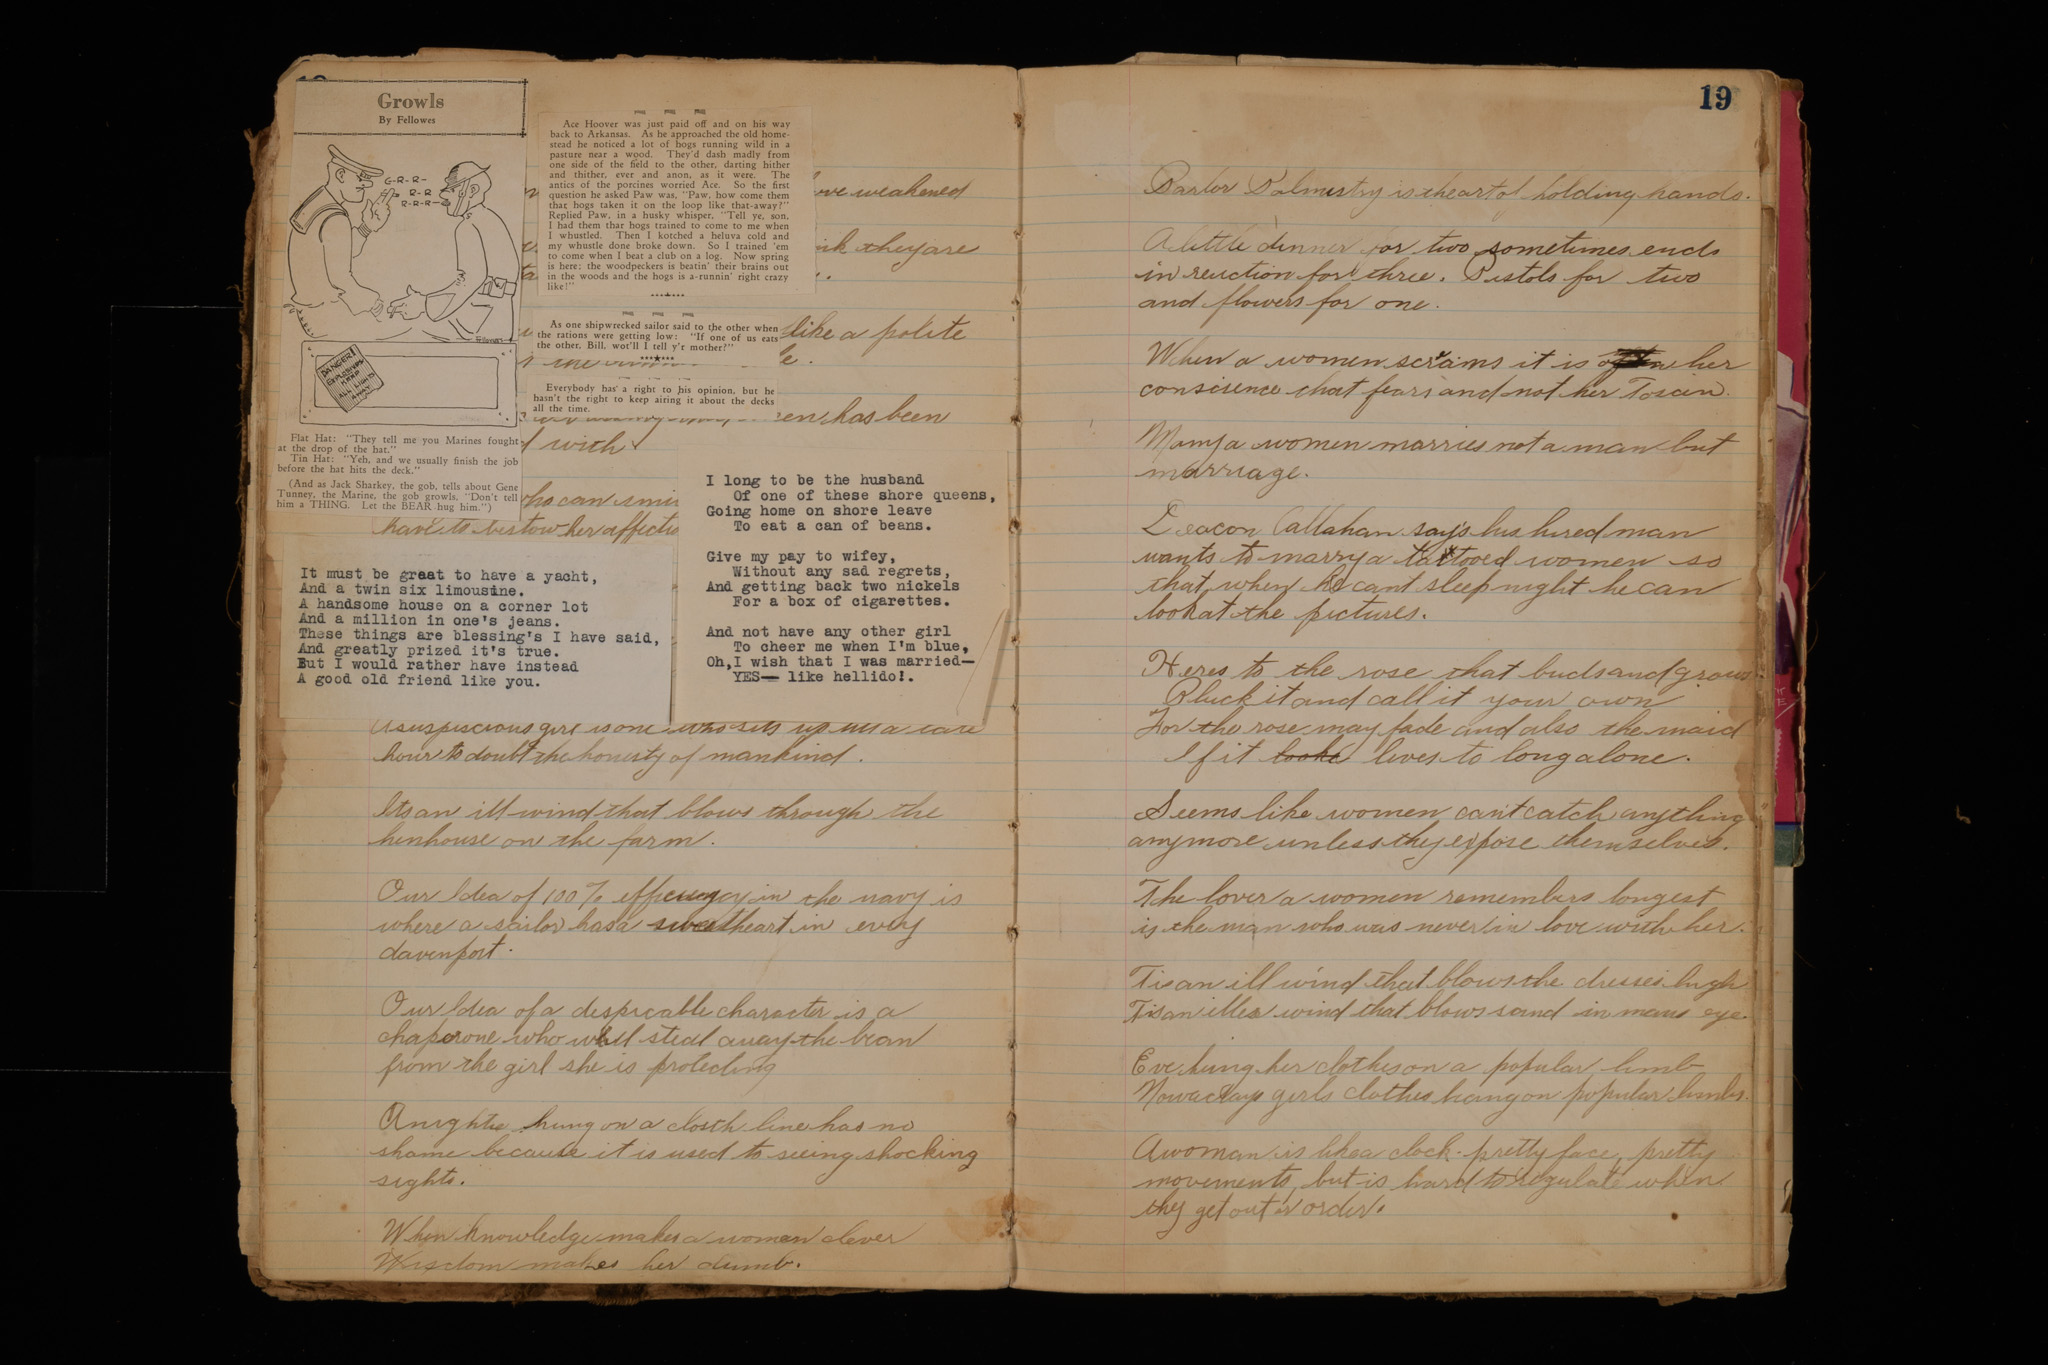 Growls
By Fellowes
G-R-R-
R-R
R-R-R-
DANGER!
EXPLOSIVES
KEEP
ALL LIGHTS
AWAY
Flat Hat: "They tell me you Marines fought
at the drop of the hat."
Tin Hat: "Yeh, and we usually finish the job
before the hat hits the deck."
(And as Jack Sharkey, the gob, tells about Gene
Tunney, the Marine, the gob growls, "Don't tell
him a THING. Let the BEAR hug him.")
Ace Hoover was just paid off and on his way
back to Arkansas. As he approached the old home-
stead he noticed a lot of hogs running wild in a
pasture near a wood. They'd dash madly from
one side of the field to the other, darting hither
and thither, ever and anon, as it were. The
antics of the porcines worried Ace. So the first
question he asked Paw was, "Paw, how come them
that hogs taken it on the loop like that-away?"
Replied Paw, in a husky whisper, "Tell ye, son,
I had them thar hogs trained to come to me when
I whustled. Then I kotched a heluva cold and
my whustle done broke down. So I trained 'em
to come when I beat a club on a log. Now spring
is here; the woodpeckers is beatin' their brains out
in the woods and the hogs is a-runnin' right crazy
like!"
As one shipwrecked sailor said to the other when
the rations were getting low: "If one of us eats
the other, Bill, wot'll I tell y'r mother?"
Everybody has a right to his opinion, but he
hasn't the right to keep airing it about the decks
all the time.
weakened
they are
like a polite
has been
with
who can
have to bestow her
It must be great to have a yacht,
And a twin six limousine.
A handsome house on a corner lot
And a million in one's jeans.
These things are blessing's I have said,
And greatly prized it's true.
But I would rather have instead
A good old friend like you.
I long to be the husband
Of one of these shore queens,
Going home on shore leave
To eat a can of beans.
Give my pay to wifey,
Without any sad regrets,
And getting back two nickels
For a box of cigarettes.
And not have any other girl
To cheer me when I'm blue,
Oh,I wish that I was married—
YES— like hellido!.
A suspiscious girl is one who sits up till a late
hour to doubt the honesty of mankind.
Its an ill wind that blows through the
henhouse on the farm.
Our Idea of 100% efficiency in the navy is
where a sailor has a sweetheart in every
davenport.
Our Idea of a despicable character is a
chaperone who will steal away the beau
from the girl she is protecting
A nightie hung on a cloth line has no
shame because it is used to seeing shocking
sights.
When knowledge makes a women clever
Wisdom makes her dumb.
19
Parlor Palmistry is the art of holding hands.
A little dinner for two sometimes ends
in reaction for three. Pistols for two
and flowers for one.
When a women screams it is often her
conscience that fears and not her
Many a women marries not a man but
marriage.
Deacon Callahan says his hired man
wants to marry a tattooed women so
that when he cant sleep night he can
look at the pictures.
Heres to the rose that buds and grows
Pluck it and call it your own
For the rose may fade and also the maid
If it lives to long alone.
Seems like women can't catch anything
anymore unless they expose themselves.
The lover a women remembers longest
is the man who was never in love with her.
Tis an ill wind that blows the dresses high
Tis an iller wind that blows sand in mans eye.
Eve hung her clothes on a popular limb
Nowadays girls clothes hang on popular limbs.
A woman is like a clock - pretty face, pretty
movements, but is hard to regulate when
they get out er order.